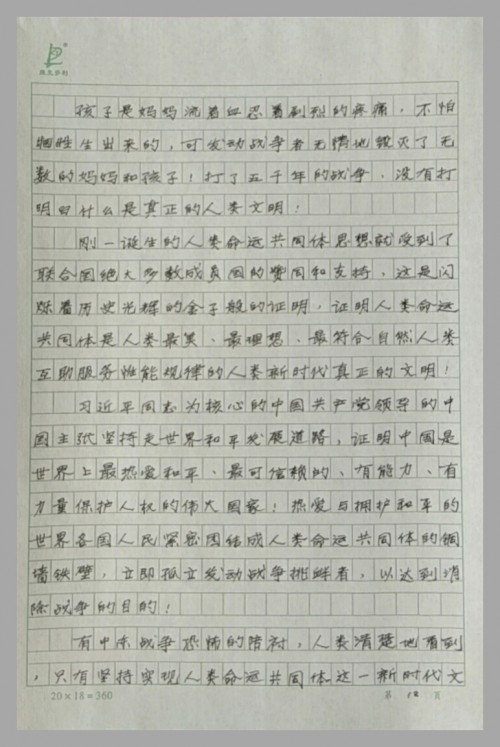 孩子是妈妈流着血忍着剧烈的疼痛，不怕
牺牲生出来的，可发动战争者无情地毁灭了无
数的妈妈和孩子！打了五千年的战争，没有打
明白什么是真正的人类文明！
刚一诞生的人类命运共同体思想就受到了
联合国绝大多数成员国的赞同和支持，这是闪
烁着历史光辉的金子般的证明，证明人类命运
共同体是人类最美、最理想、最符合自然人类
互助服务性能规律的人类新时代真正的文明！
习近平同志为核心的中国共产党领导的中
国主张坚持走世界和平发展道路，证明中国是
世界上最热爱和平、最可信赖的、有能力、有
力量保护人权的伟大国家！热爱与拥护和平的
世界各国人民紧密团结成人类命运共同体的铜
墙铁壁，立即孤立发动战争挑衅者，以达到消
除战争的目的！
有中东战争恐怖的陪衬，人类清楚地看到
，只有坚持实现人类命运共同体这一新时代文
20×18=360
第 12 页